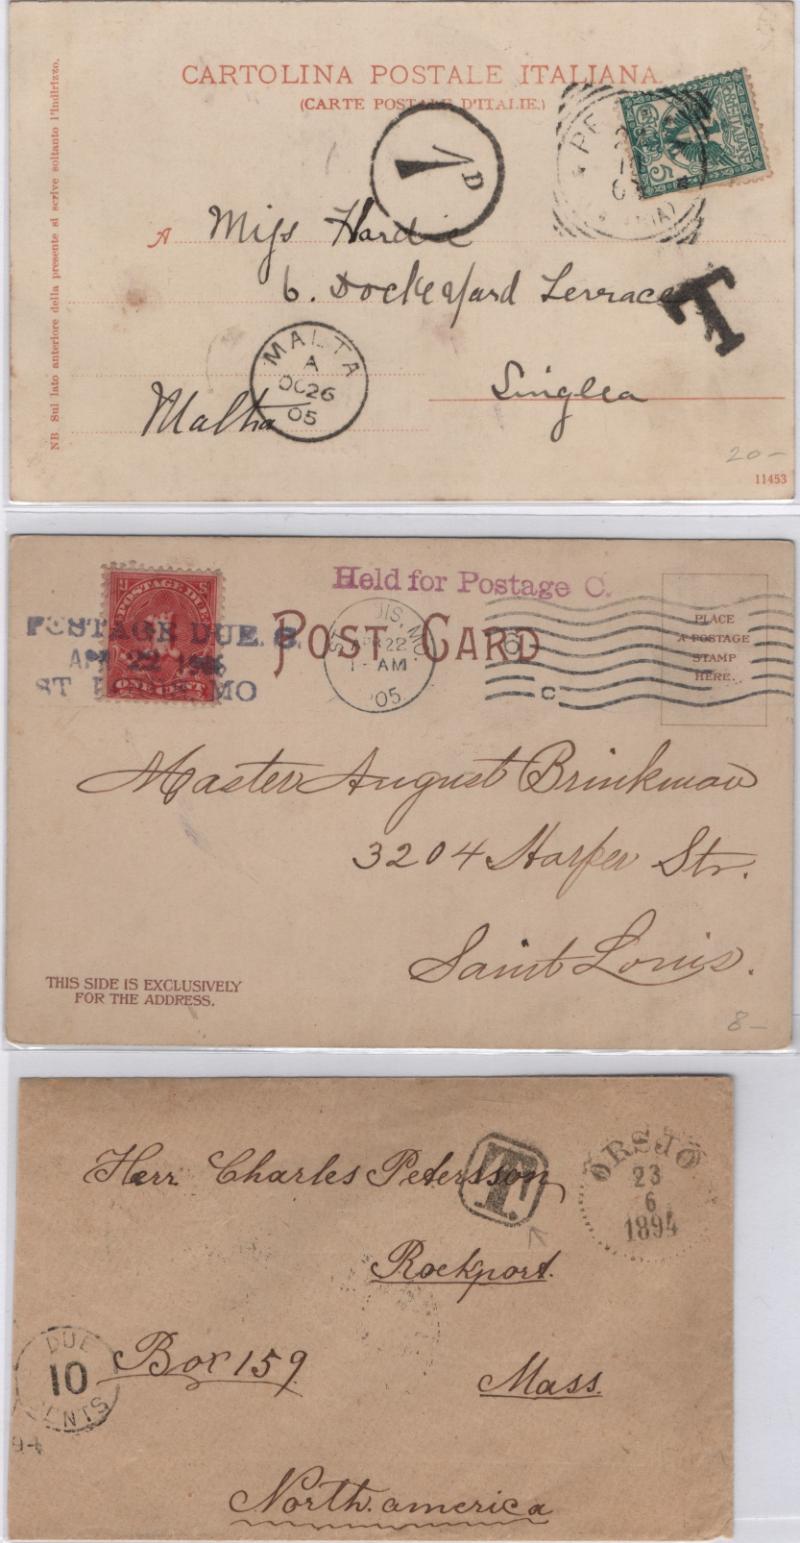 CARTOLINA POSTALE ITALIANA
(CARTE POSTALE D'ITALIE.)
NB. Sul lato anteriore della presente si scrive soltanto l'indirizzo.
1 D
5
A Miss Hardie
6. Dockyard Terrace
T
Singlea
Malta
MALTA
A
OC 26
05
20-
11453
Held for Postage C.
POSTAGE DUE
ONE CENT
POSTAGE DUE. S.
APR 22 1905
ST. LOUIS, MO
POST CARD
22
1- AM
'05
6
C
PLACE
A POSTAGE
STAMP
HERE.
Master August Brinkman
3204 Harper Str.
Saint Louis.
THIS SIDE IS EXCLUSIVELY
FOR THE ADDRESS.
8-
Herr Charles Petersson
T.
ÖRSJÖ
23
6
1894
Rockport.
DUE
10
CENTS
Box 159
Mass.
North. america